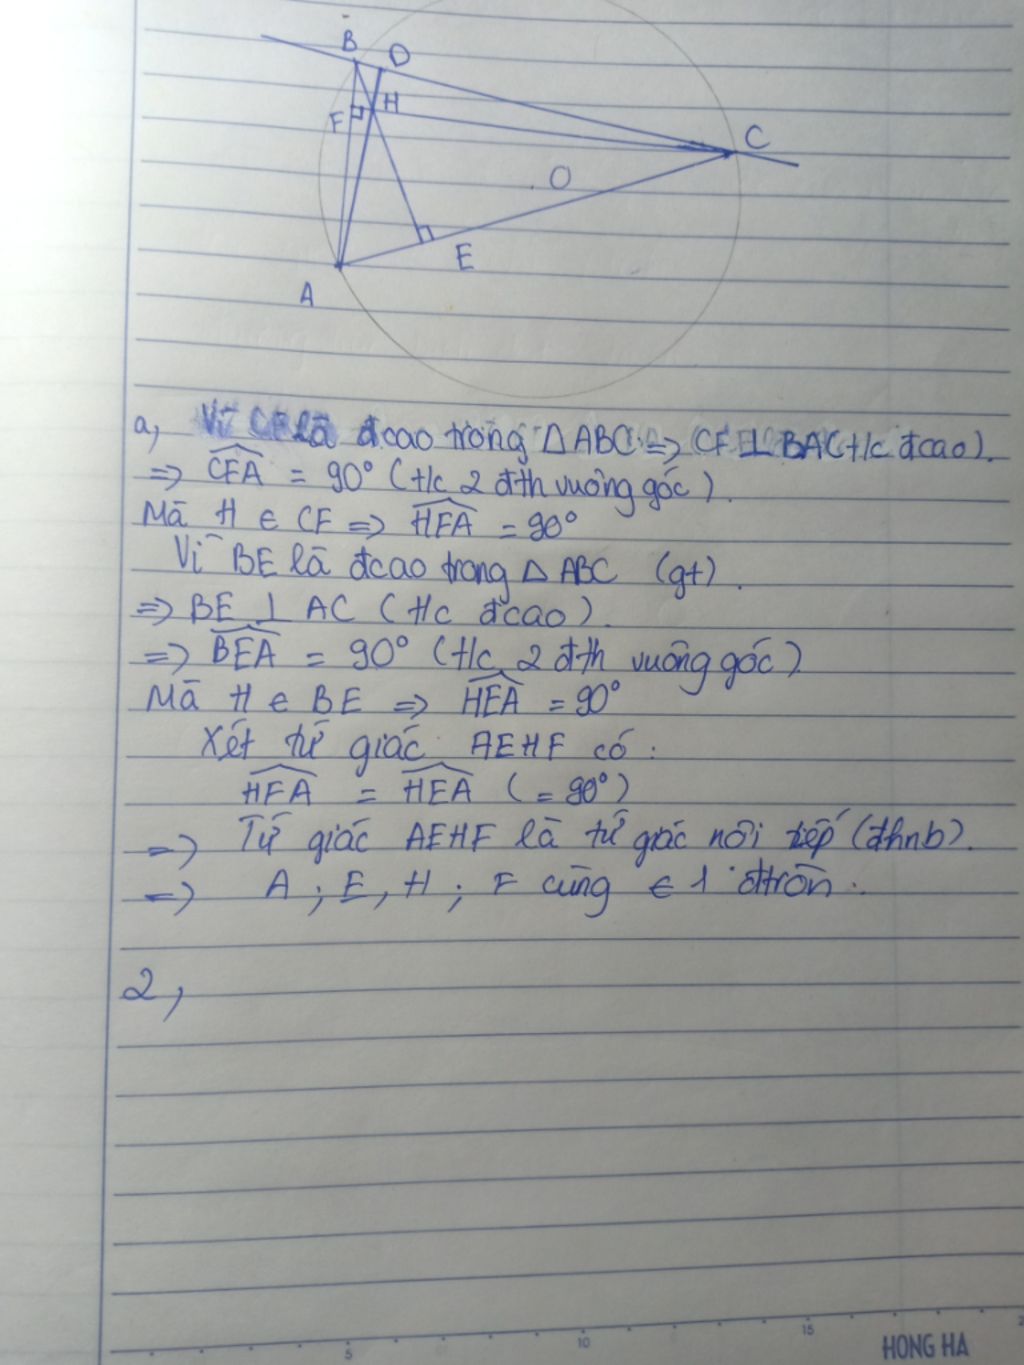 B
D
F
H
C
O
E
A
a, Vì CF là đcao trong △ABC ⇒ CF ⊥ BA (t/c đcao).
⇒ CFA = 90° (t/c 2 đth vuông góc).
Mà H ∈ CF ⇒ HFA = 90°
Vì BE là đcao trong △ ABC (gt).
⇒ BE ⊥ AC (t/c đcao).
⇒ BEA = 90° (t/c 2 đth vuông góc)
Mà H ∈ BE ⇒ HEA = 90°
Xét tứ giác AEHF có:
HFA = HEA (= 90°)
⇒ Tứ giác AEHF là tứ giác nội tiếp (dhnb).
⇒ A; E, H; F cùng ∈ 1 đtròn.
2,
5 10 15 2
HONG HA